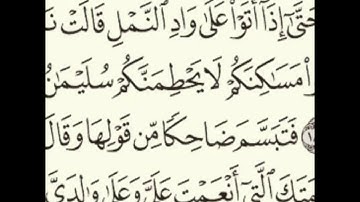 حَتَّىٰٓ إِذَآ أَتَوْا۟ عَلَىٰ وَادِ ٱلنَّمْلِ قَالَتْ
مَسَٰكِنَكُمْ لَا يَحْطِمَنَّكُمْ سُلَيْمَٰنُ
فَتَبَسَّمَ ضَاحِكًا مِّن قَوْلِهَا وَقَالَ
ٱلَّتِىٓ أَنْعَمْتَ عَلَىَّ وَعَلَىٰ وَٰلِدَىَّ